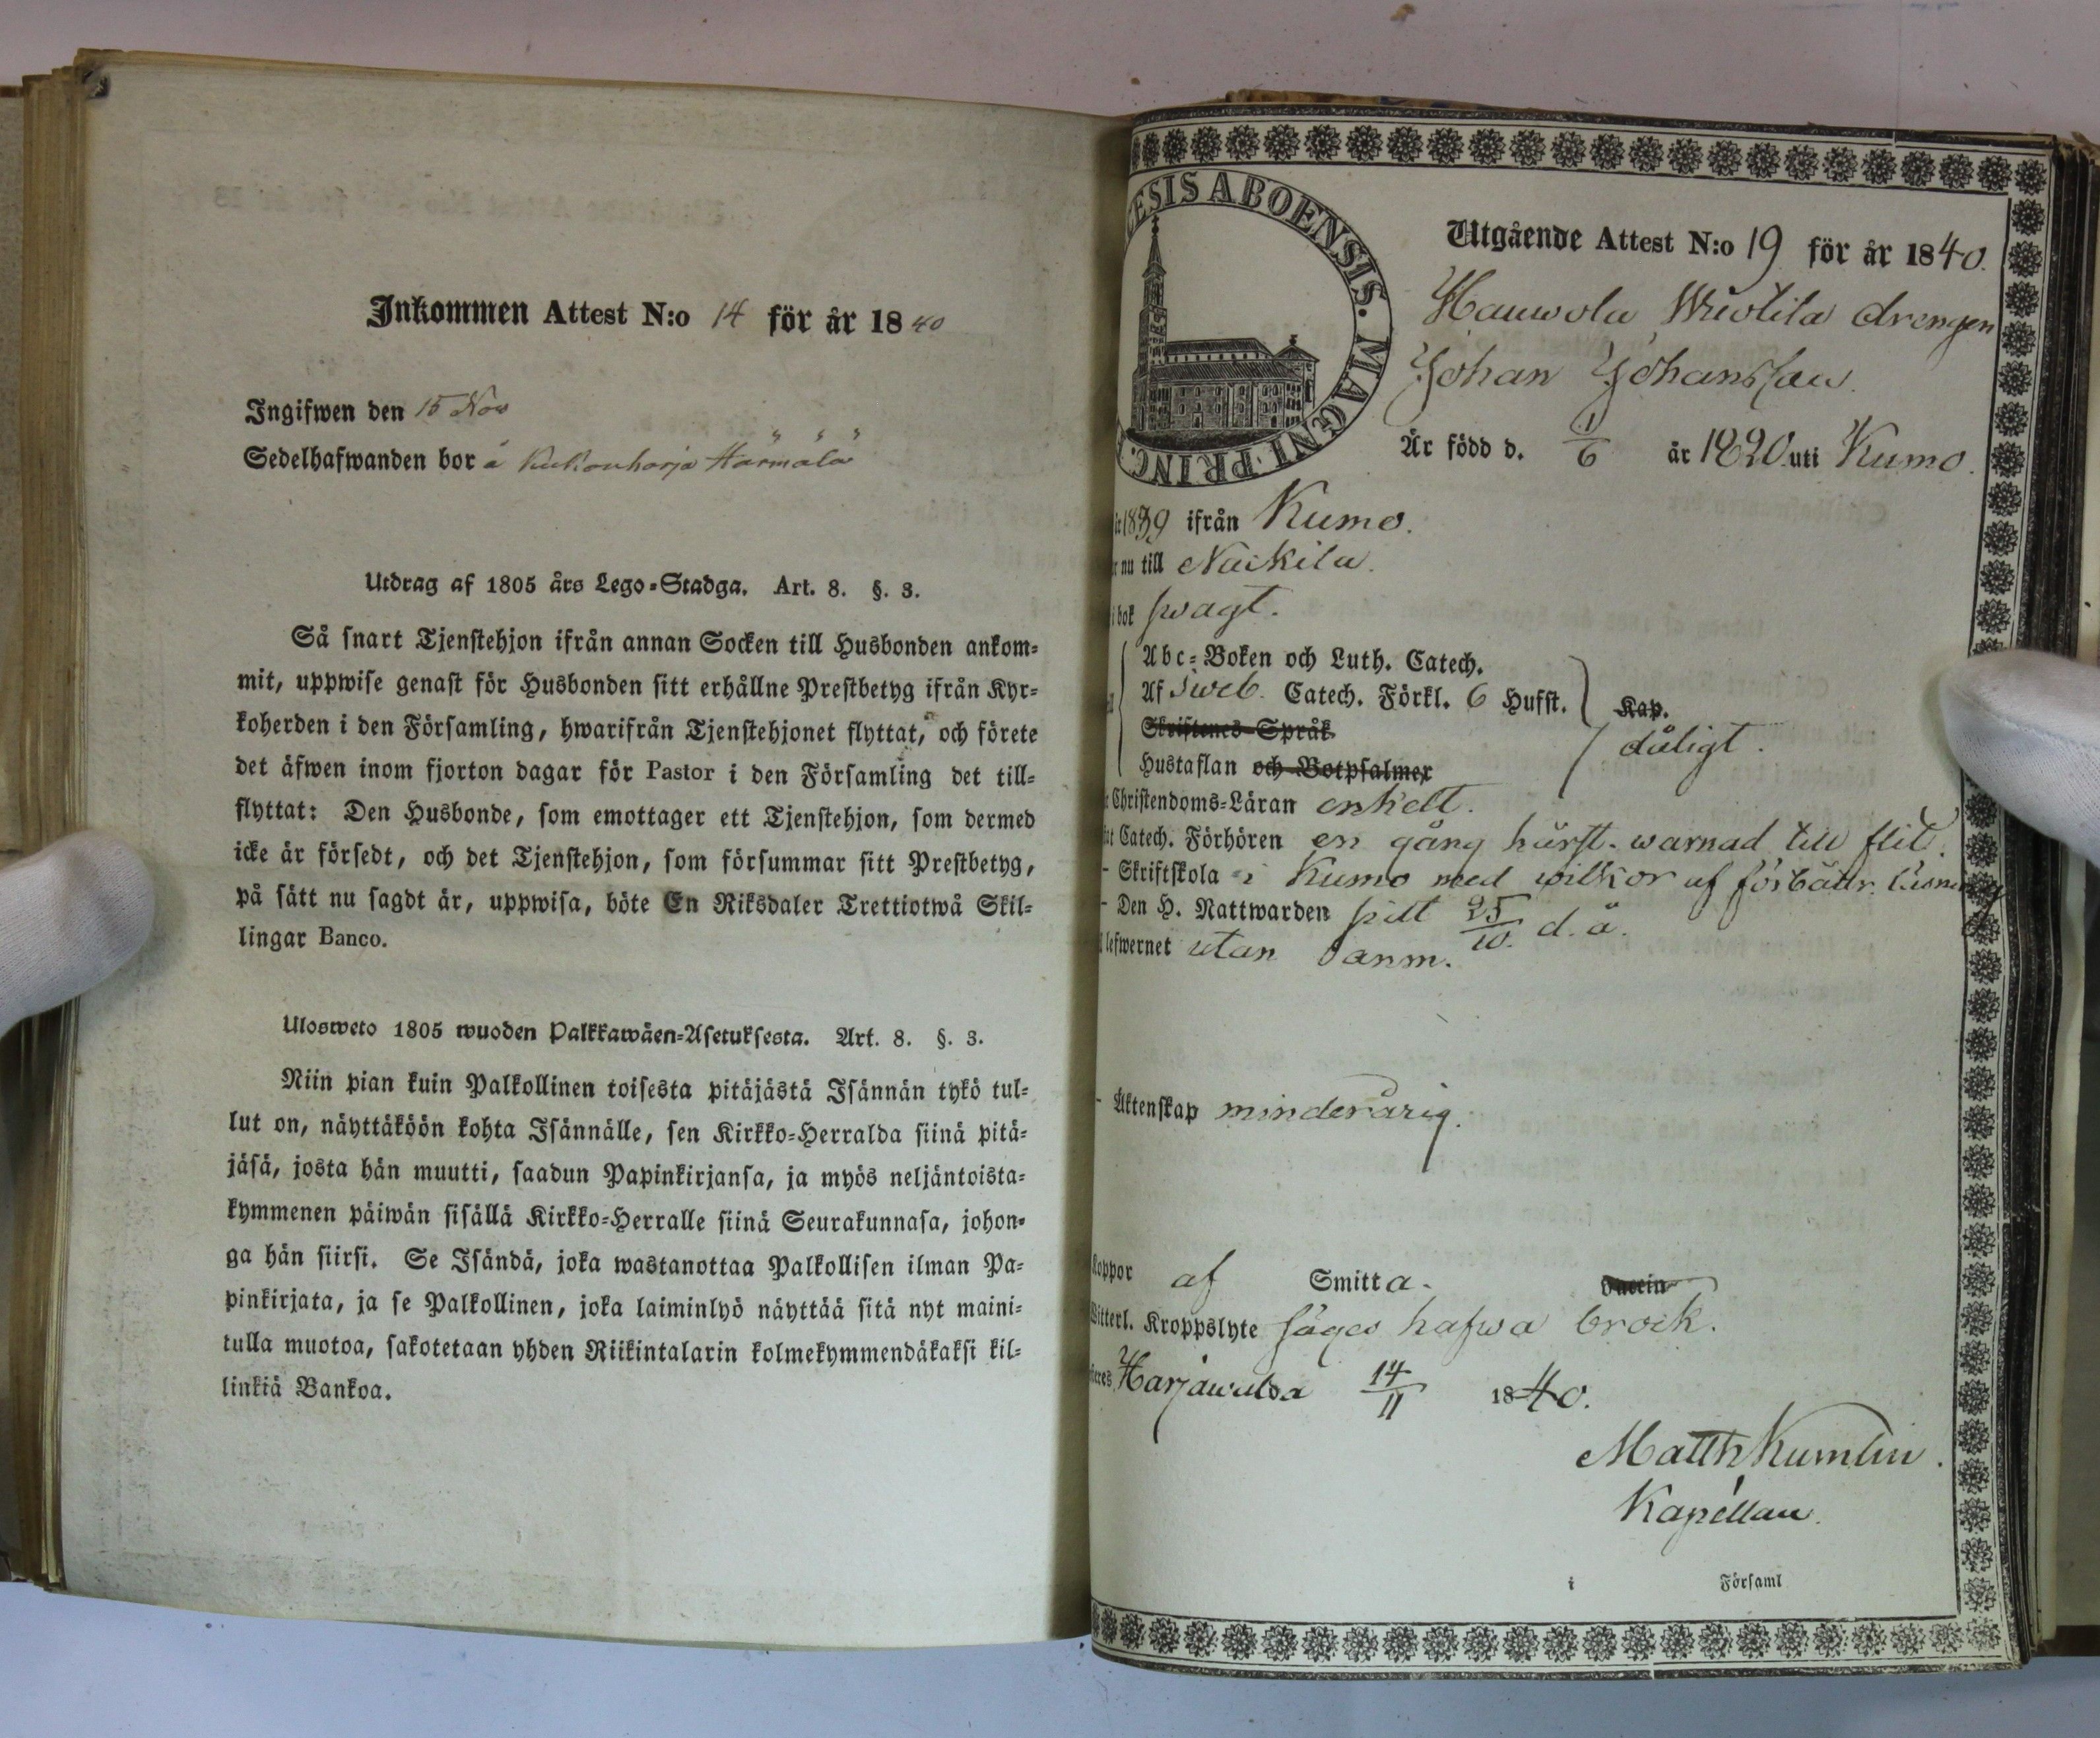 Inkommen Attest N:o 14 för år 1840
Ingifwen den 15 Nov
Sedelhafwanden bor å Kukonharja Härmälä
Utdrag af 1805 års Lego-Stadga. Art. 8. §. 3.
Så snart Tjenstehjon ifrån annan Socken till Husbonden ankom-
mit, uppwise genast för Husbonden sitt erhållne Prestbetyg ifrån Kyr-
koherden i den Församling, hwarifrån Tjenstehjonet flyttat, och förete
det äfwen inom fjorton dagar för Pastor i den Församling det till-
flyttat: Den Husbonde, som emottager ett Tjenstehjon, som dermed
icke är försedt, och det Tjenstehjon, som försummar sitt Prestbetyg,
på sätt nu sagdt är, uppwisa, böte En Riksdaler Trettiotwå Skil-
lingar Banco.
Ulosweto 1805 wuoden Palkkawäen-Asetuksesta. Art. 8. §. 3.
Niin pian kuin Palkollinen toisesta pitäjästä Isännän tykö tul-
lut on, näyttäköön kohta Isännälle, sen Kirkko-Herralda siinä pitä-
jäsä, josta hän muutti, saadun Papinkirjansa, ja myös neljäntoista-
kymmenen päiwän sisällä Kirkko-Herralle siinä Seurakunnasa, johon-
ga hän siirsi. Se Isändä, joka wastanottaa Palkollisen ilman Pa-
pinkirjata, ja se Palkollinen, joka laiminlyö näyttää sitä nyt maini-
tulla muotoa, sakotetaan yhden Riikintalarin kolmekymmendäkaksi kil-
linkiä Bankoa.
ESIS ABOENSIS. MAGNI PRINC.
Utgående Attest N:o 19 för år 1840.
drengen
Johan Johansson
Är född d. 1/6 år 1820 uti Kumo.
1839 ifrån Kumo.
nu till Nackila.
i bok swagt.
Abc-Boken och Luth. Catech.
Af Sweb. Catech. Förkl. 6 Hufst. Kap.
Skriftenes Språk
Hustaflan och Botpsalmer
dåligt.
Christendoms-Läran enkelt.
Catech. Förhören en gång härst. warnad till flit.
- Skriftskola i Kumo med wilkor af förbättr. läsning
- Den H. Nattwarden sist 25/10. d. å.
lefwernet utan anm.
- Äktenskap minderårig.
Koppor af Smitta. Vaccin
Witterl. Kroppslyte säges hafwa brock.
Harjawalda 14/11 1840.
Matth Kumlin.
Kapellan.
i Församl